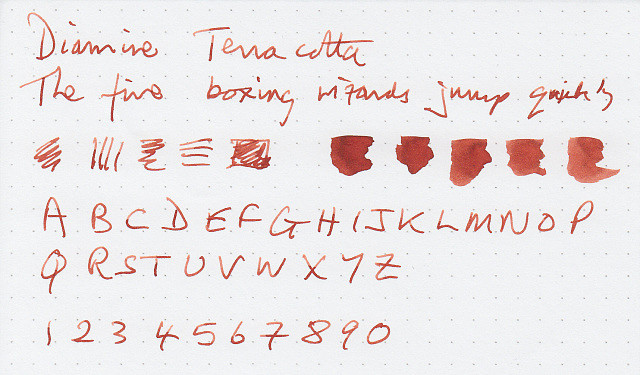 Diamine Terracotta
The five boxing wizards jump quickly
A B C D E F G H I J K L M N O P
Q R S T U V W X Y Z
1 2 3 4 5 6 7 8 9 0